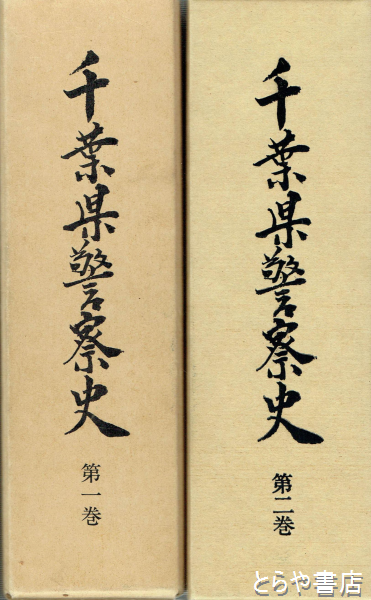 千葉県警察史
第一巻
千葉県警察史
第二巻
とらや書店